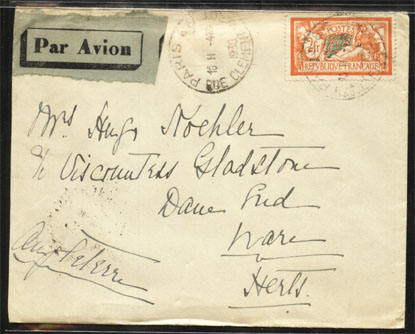 Par Avion
PARIS
RUE CLEMENT
2F
POSTES
REPUBLIQUE FRANÇAISE
Mrs Hugo Koehler
c/o Viscountess Gladstone
Dane End
Ware
Herts.
Angleterre